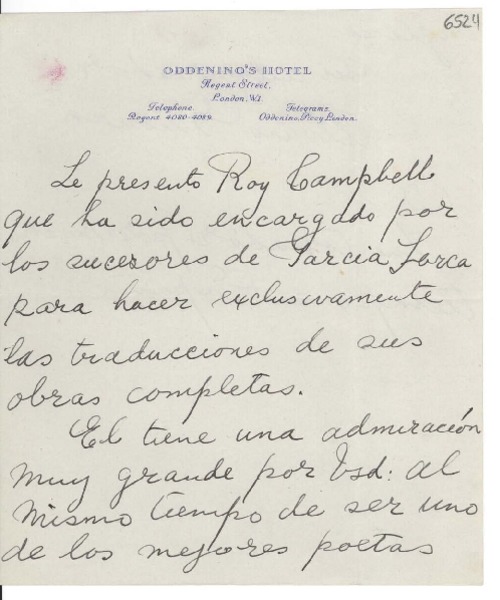 6524
ODDENINO'S HOTEL
Regent Street,
London, W.1.
Telephone
Regent 4080-4089.
Telegrams
Oddenino, Piccy London.
Le presento Roy Campbell
que ha sido encargado por
los sucesores de Garcia Lorca
para hacer exclusivamente
las traducciones de sus
obras completas.
El tiene una admiración
muy grande por Vsd: al
mismo tiempo de ser uno
de los mejores poetas